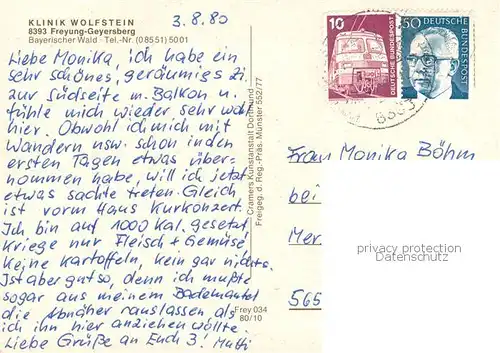 KLINIK WOLFSTEIN
8393 Freyung-Geyersberg
Bayerischer Wald · Tel.-Nr. (08551) 5001
3.8.80
Liebe Monika, ich habe ein
sehr schönes, geräumiges Zi.
zur Südseite m. Balkon u.
fühle mich wieder sehr wohl
hier. Obwohl ich mich mit
Wandern usw. schon in den
ersten Tagen etwas über-
nommen habe, will ich jetzt
etwas sachte treten. Gleich
ist vorm Haus Kurkonzert.
Ich bin auf 1000 Kal. gesetzt
Kriege nur Fleisch + Gemüse
keine Kartoffeln, kein gar nichts.
Ist aber gut so, denn ich mußte
sogar aus meinem Bademantel
die Abnäher rauslassen als
ich ihn hier anziehen wollte.
Liebe Grüße an Euch 3! Mutti
Cramers Kunstanstalt Dortmund
Freigeg. d. Reg.-Präs. Münster 552/77
Frey 034
80/10
10
DEUTSCHE BUNDESPOST
50
DEUTSCHE BUNDESPOST
8393
Frau Monika Böhm
bei
Mer
565
privacy protection
Datenschutz